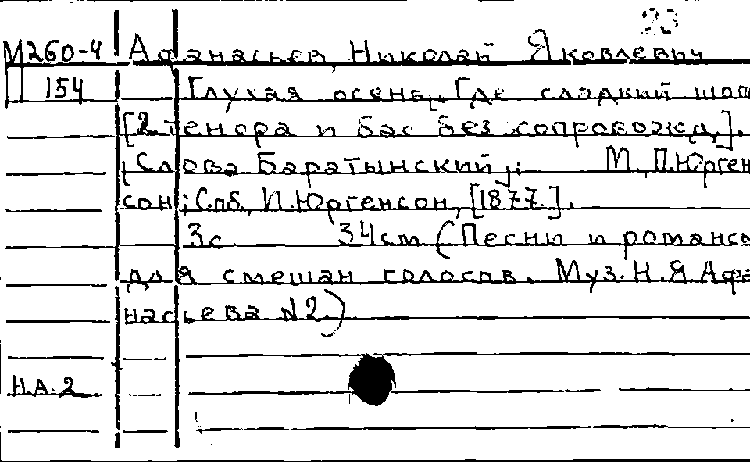 23
М260-4 Афанасьев, Николай Яковлевич
154 Глухая осень. Где сладкий шоп
[2 тенора и бас без сопровожд.].
Слова Баратынский; М., П. Юрген
сон; Спб., И. Юргенсон, [1877].
3с 34см (Песни и романсы
для смешан голосов. Муз. Н. Я Афа
насьева №2)
НА.2